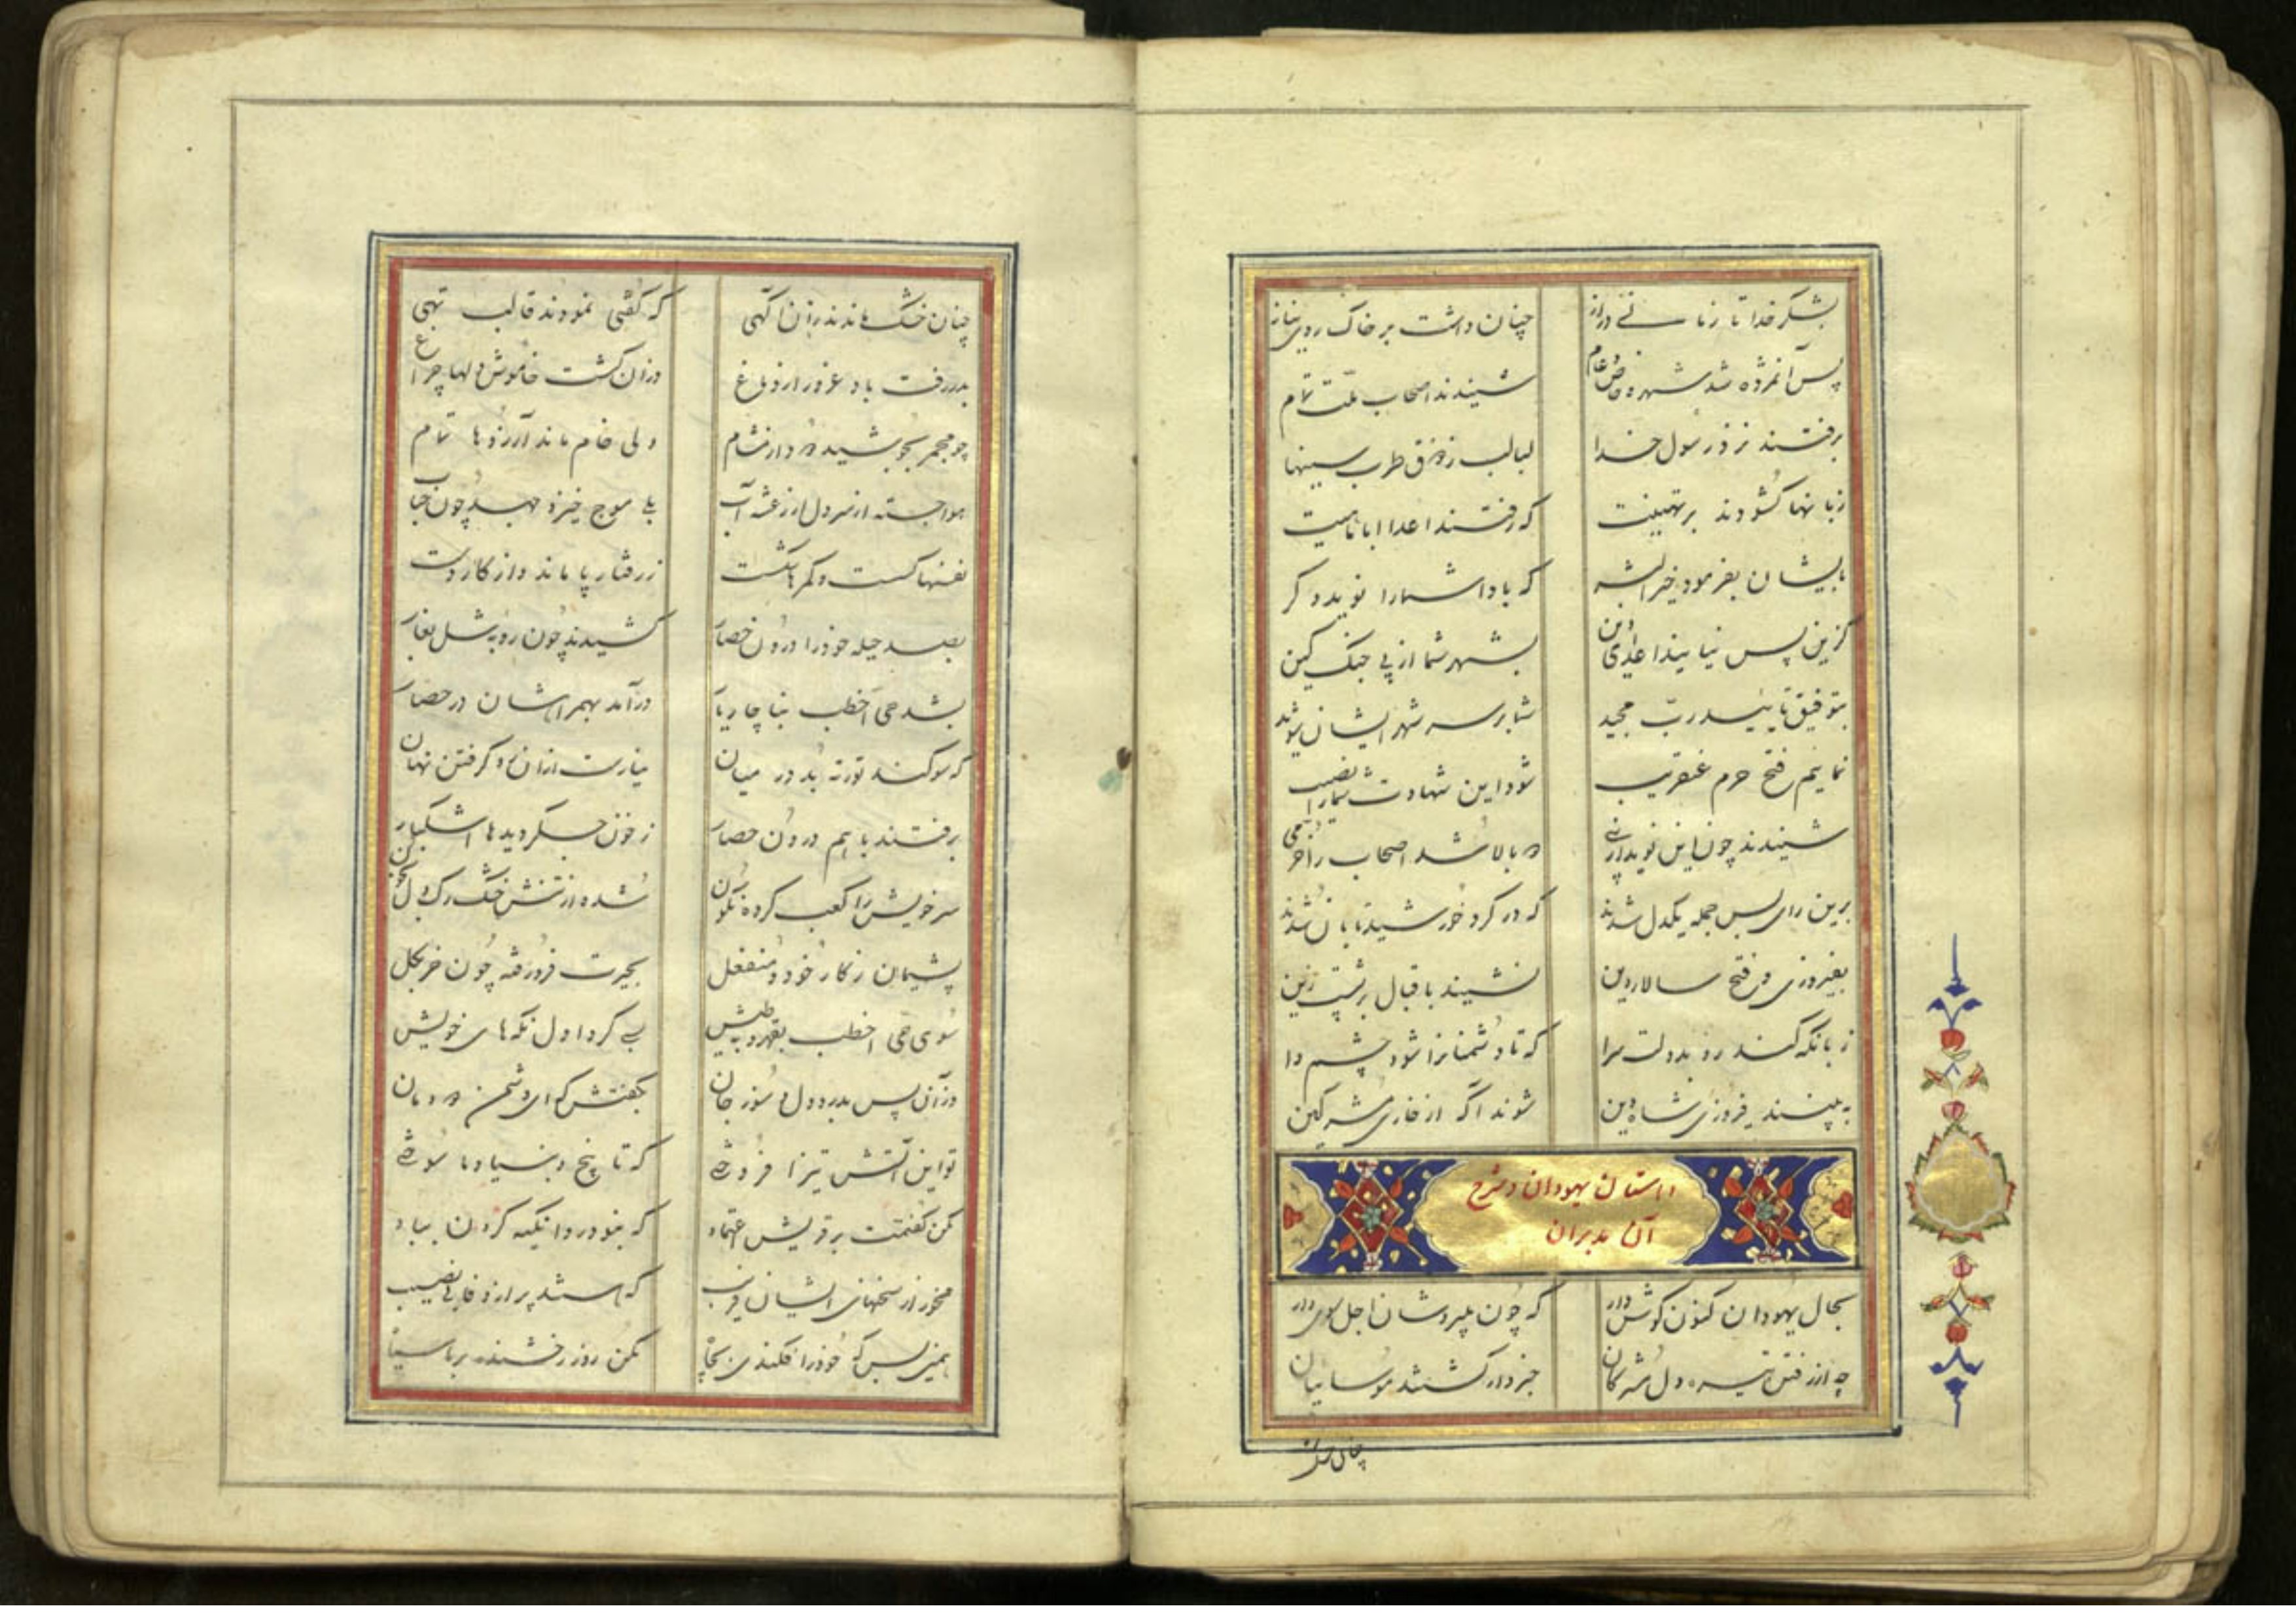 بشکر خدا تا زمانے دراز چنان داشت بر خاک روی نیاز
پس آنمژده شد شهره خاص و عام شنیدند اصحاب ملت تمام
برفتند نزد رسول خدا لبالب ز ذوق طرب سینها
زبانها کشودند بر تهنیت که رفتند اعدا ابا
بایشان بفرمود خیر البشر که بادا شمارا نوید دکر
کزین پس نیایند اعدای دین بشهر شما از پی جنک کین
بتوفیق تایید رب مجید شما بر سر شهر ایشان شوید
نماییم فتح حرم عنقریب شود این شهادت شمارا نصیب
شنیدند چون این نوید از نبی دو بالا شد اصحاب را خرمی
برین رای پس جمله یکدل شدند که در کرد خورشید تابان شدند
بفیروزی و فتح سالار دین نشیند باقبال بر پشت زین
زبانکه کند رو بدولت سرا که تا دشمنانرا شود چشم وا
به بینند فروزی شاه دین شوند آگه از خاری مشرکین
داستان یهودان و شرح
آن بدبران
بحال یهودان کنون کوش دار که چون پیروشان اجل سوی دار
چه از رفتن تیره دل مشرکان خبردار کشتند موسائیان
چنان خشک
چنان خشک ماندند زان آگهی که گفتی نمودند قالب تهی
بدر رفت باد غرور از دماغ وزان کشت خاموش دلها چراغ
چو مجمر بجوشید دود از مشام ولی خام ماند آرزوها تمام
هوا جسته از سر دل از رعشه آب بے موج خیزد چون حباب
نفسها کسست و کمرها شکست ز رفتار پا ماند و از کار دست
بصد حیله خود را درون حصار کشیدند چون روبه شل بغار
بشد حی اخطب بناچار یار درآمد بهمراهشان در حصار
که سوکند تورته بد در میان نیارست از آن ره کرفتن نهان
برفتند با هم درون حصار ز خون جگر دیدها اشکبار
سر خویش را کعب کرده نکون شده از تنش خشک رک دل بخون
پشیمان ز کار خود و منفعل بحیرت فرورفته چون خر بکل
سوی حی اخطب بقهر و بطیش بے کرد اول نگه های خویش
وز آن پس بدرد دل و سوز جان بگفتش که ای دشمن دودمان
تو این آتش تیز افروختے که تا بیخ و بنیاد ما سوختے
نکن گفتمت بر قریش اعتماد که نبود روا تکیه کردن بباد
مخور از سخنهای ایشان فریب که هستند پر از وفا بے نصیب
همین بس که خود را فکندی بچاه مکن روز رخشنده بر ما سیاه